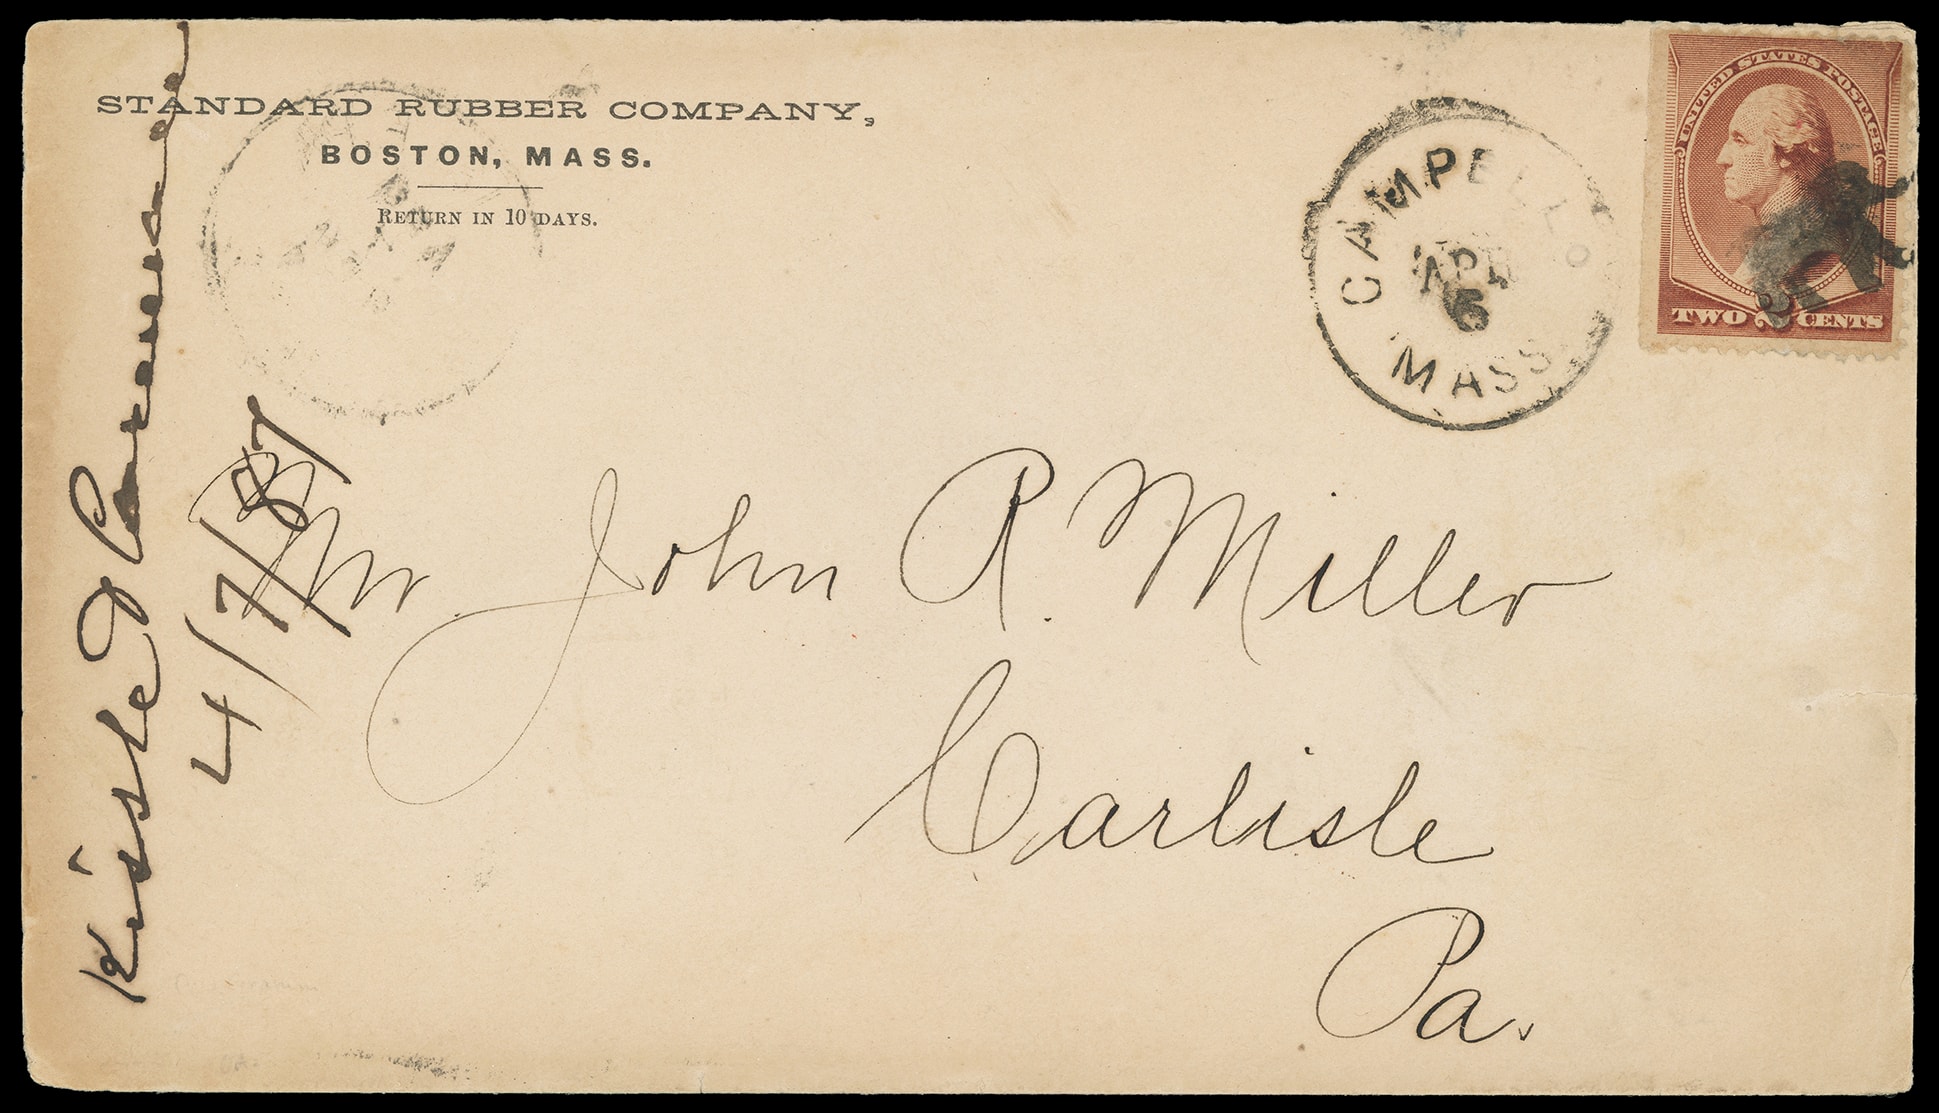 STANDARD RUBBER COMPANY,
BOSTON, MASS.
RETURN IN 10 DAYS.
CAMPELLO
APR
6
MASS
UNITED STATES POSTAGE
TWO 2 CENTS
Mr. John R. Miller
Carlisle
Pa.
4/7/87